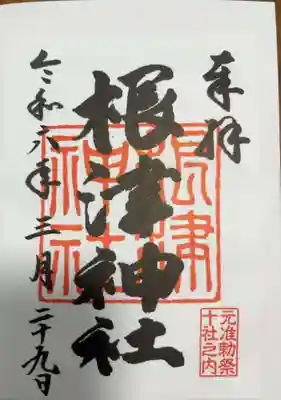 奉拝
元准勅祭
十社之内
根津神社
根津
神社
令和六年三月二十九日